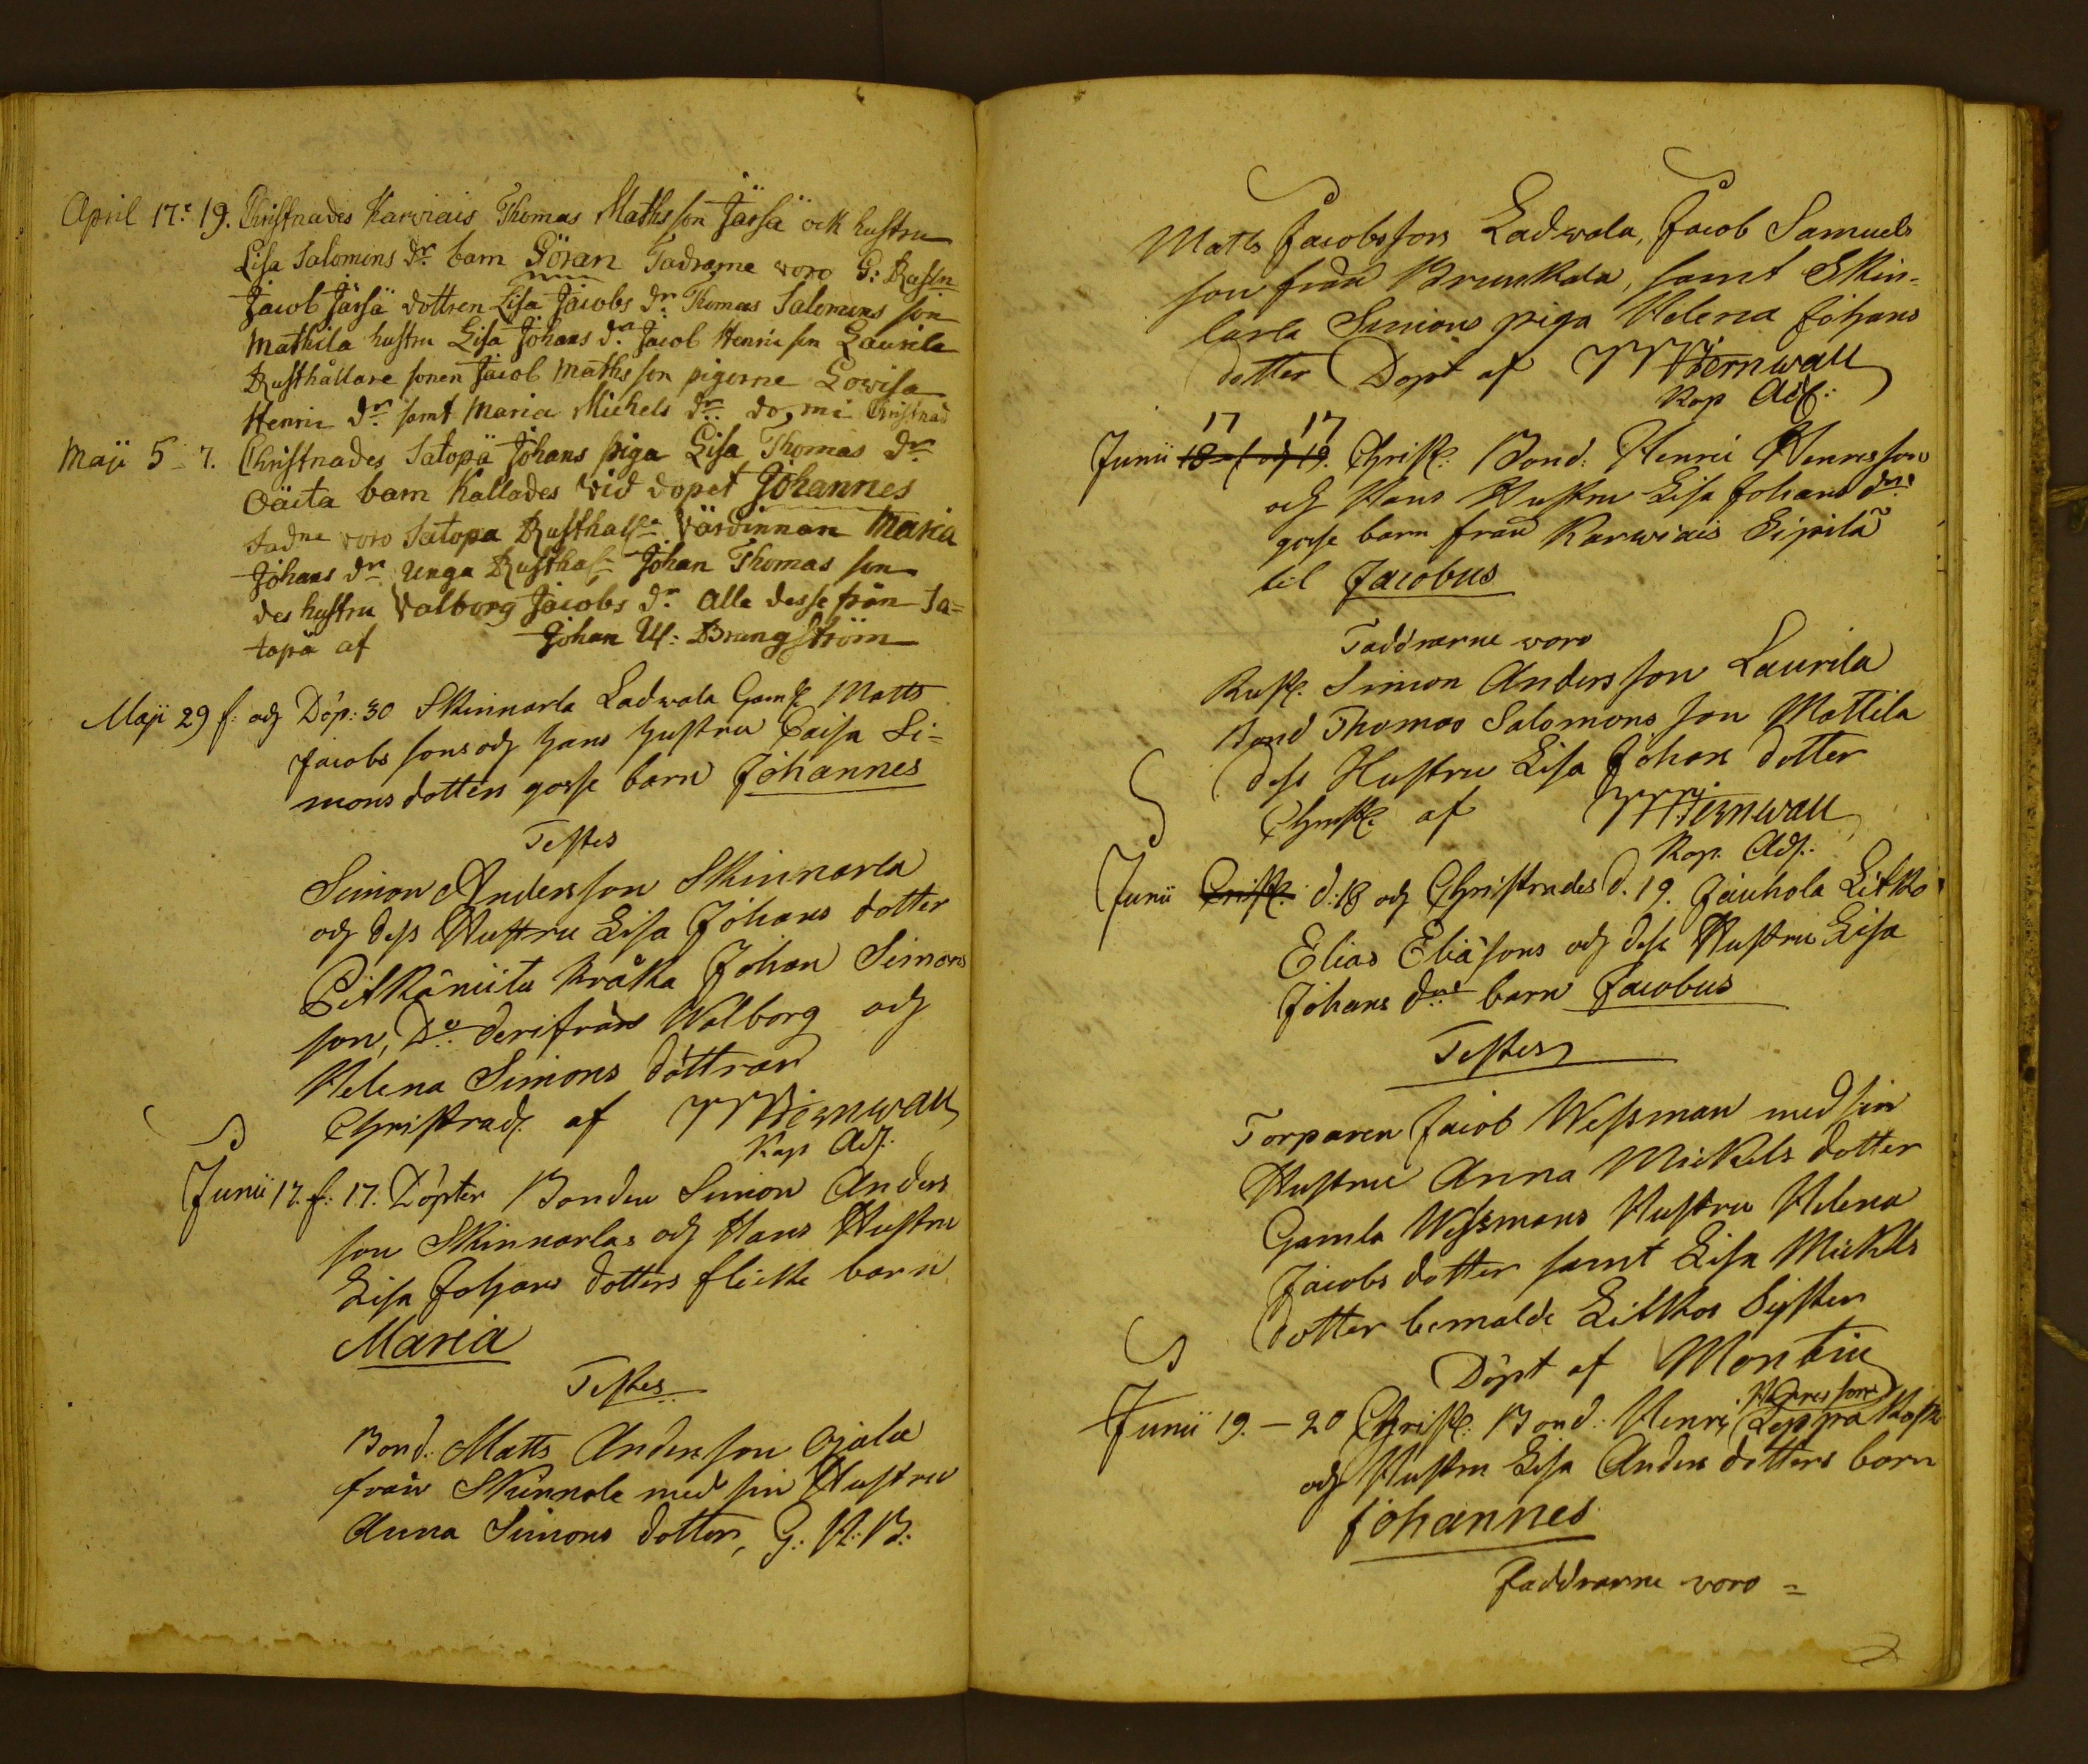 April 17. 19. Christnades Karviais Thomas Mathsson Jarsä ock hustru
Lisa Salomons dr. barn Göran Fadrarne voro G: Rusth
Jacob Järsä dottren Lisa Jacobs dr. Thomas Salomons son
Mathila hustru Lisa Johans dr. Jacob Henricson Laurila
Rusthållare sonen Jacob Mathsson pigorne Lovisa
Henric dr. samt Maria Michels dr. Christnad
Maji 5 - 7. Christnades Satopä Johans piga Lisa Thomas dr.
oäcta barn Kallades vid dopet Johannes
fadne voro Satopa Rusthall Värdinnan Maria
Johans dr. Unga Rusthal Johan Thomas son
des hustru Valborg Jacobs dr. alla desse från Sa=
topä af Johan Ul: Brungström
Maji 29 f: och Döp: 30 Skinnarla Ladwala Matts
Jacobs sons och hans hustru Caisa Si=
mons dotters gosse barn Johannes
Testes
Simon Andersson Skinnarla
och dess Hustru Lisa Johans dotter
Pitkäniitu Kråka Johan Simons
son, Do derifrån Walborg och
Helena Simons döttrar
Christnad. af Wernwall
Kap Adj.
Junii 17. f: 17. Döpter Bonden Simon Anders
son Skinnarlas och Hans Hustru
Lisa Johans dotters flicke barn
Maria
Testes
Bond: Matts Andersson Ojala
från Skinnala med sin Hustru
Anna Simons dotter, G: R: B:
Matts Jacobsson Ladwala, Jacob Samuels
son från Brunkala, samt Skin-
larla Simons piga Helena Johans
dotter Döpt af Wernwall
Kap Adj:
17 17
Junii 18 f och 19. Christ: Bond: Henric Henricsson
och Hans Hustru Lisa Johans drs
gosse barn från Karwiais Sipilä
til Jacobus
Faddrarne woro
Rust. Simon Andersson Laurila
Bond Thomas Salomons son Mattila
dess Hustru Lisa Johans dotter
Christ. af Wernwall
Kap. Adj.
Junii Crist. d: 18 och Christnades d. 19. Jauhola Litko
Elias Eliäsons och dess Hustru Lisa
Johans drs barn Jacobus
Testes
Torparen Jacob Wessman med sin
Hustru Anna Mickels dotter
Gamla Wessmans Hustru Helena
Jacobs dotter samt Lisa Mickels
dotter bemälde Litkos Syster
Döpt af Montin
Henricsson
Junii 19. - 20 Christ: Bond: Henric Leppäkoski
och Hustru Lisa Anders dotters barn
Johannes
Faddrarne woro =